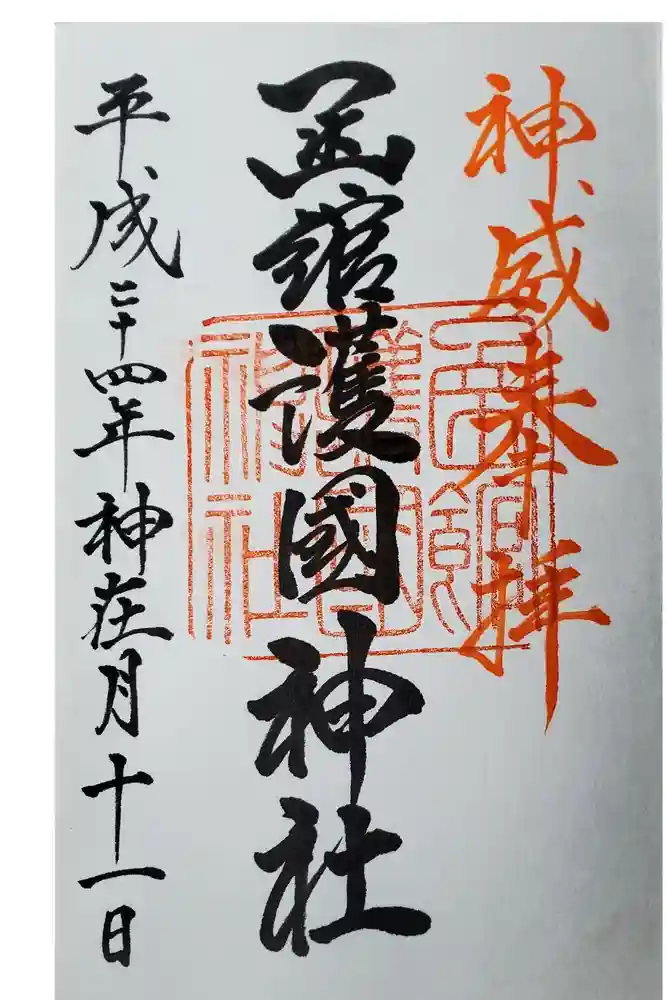 神威奉拝
函館護國神社
平成二十四年神在月十一日
函館
護国
神社